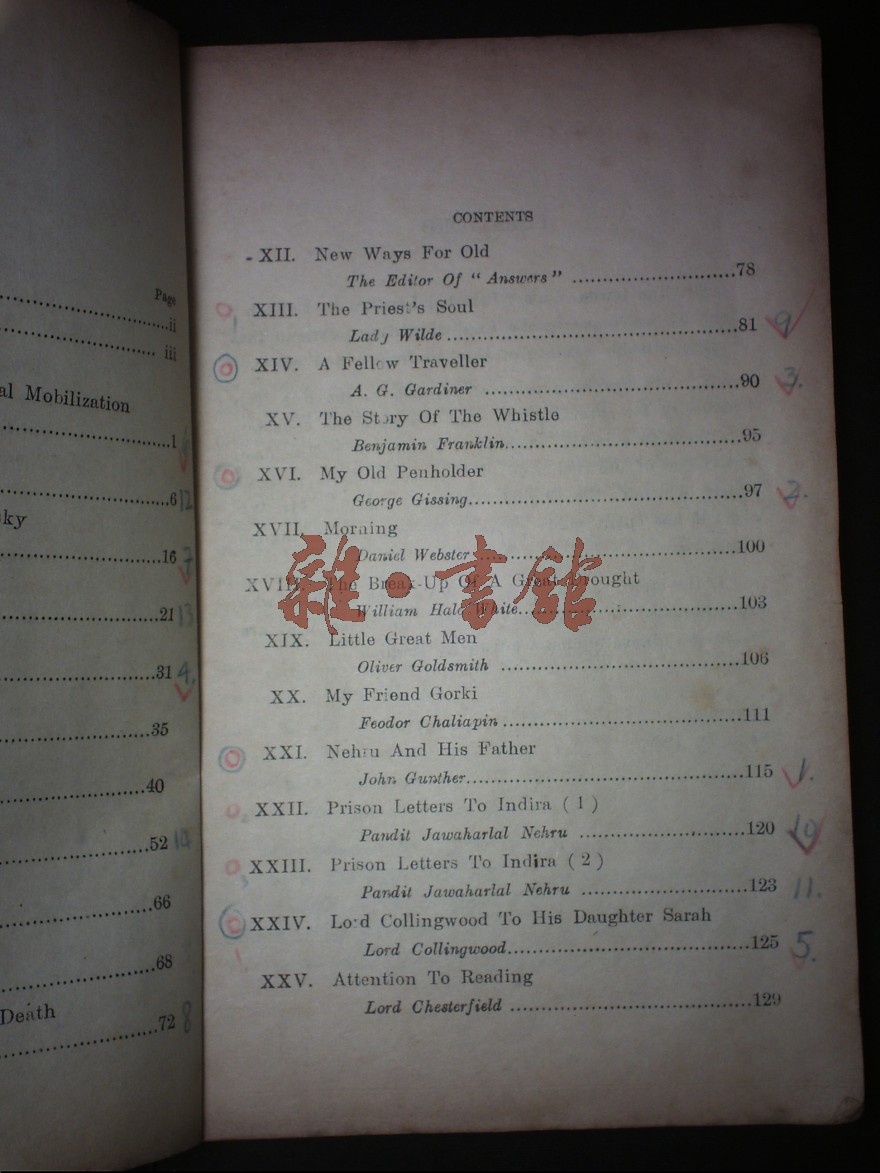 Page
ii
iii
al Mobilization
1
6 12
ky
16 7
21 13
31 4.
35
40
52 14
66
68
Death
72 8
CONTENTS
- XII. New Ways For Old
The Editor Of “ Answers ” 78
XIII. The Priest's Soul
Lady Wilde 81 9
XIV. A Fellow Traveller
A. G. Gardiner 90 3.
XV. The Story Of The Whistle
Benjamin Franklin 95
XVI. My Old Penholder
George Gissing 97 2.
XVII. Morning
Daniel Webster 100
XVIII. The Break-Up Of A Great Drought
William Hale White 103
XIX. Little Great Men
Oliver Goldsmith 106
XX. My Friend Gorki
Feodor Chaliapin 111
XXI. Nehru And His Father
John Gunther 115 1.
XXII. Prison Letters To Indira ( 1 )
Pandit Jawaharlal Nehru 120 10
XXIII. Prison Letters To Indira ( 2 )
Pandit Jawaharlal Nehru 123 11.
XXIV. Lord Collingwood To His Daughter Sarah
Lord Collingwood 125 5.
XXV. Attention To Reading
Lord Chesterfield 129
雜·書館